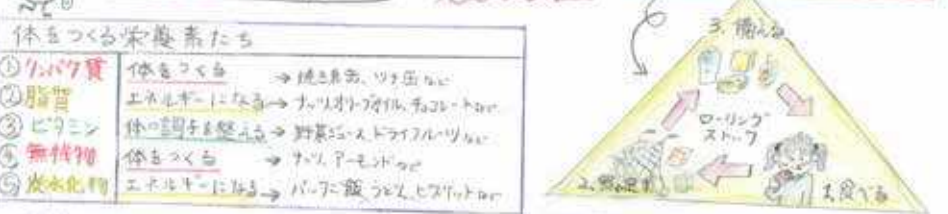 体をつくる栄養素たち
①タンパク質 体をつくる → 焼き鳥缶、ツナ缶など
②脂質 エネルギーになる → ナッツ、オリーブオイル、チョコレートなど
③ビタミン 体の調子を整える → 野菜ジュース、ドライフルーツなど
④無機物 体をつくる → ナッツ、アーモンドなど
⑤炭水化物 エネルギーになる → パックご飯、うどん、ビスケットなど
3.備える
ローリング
ストック
1.食べる